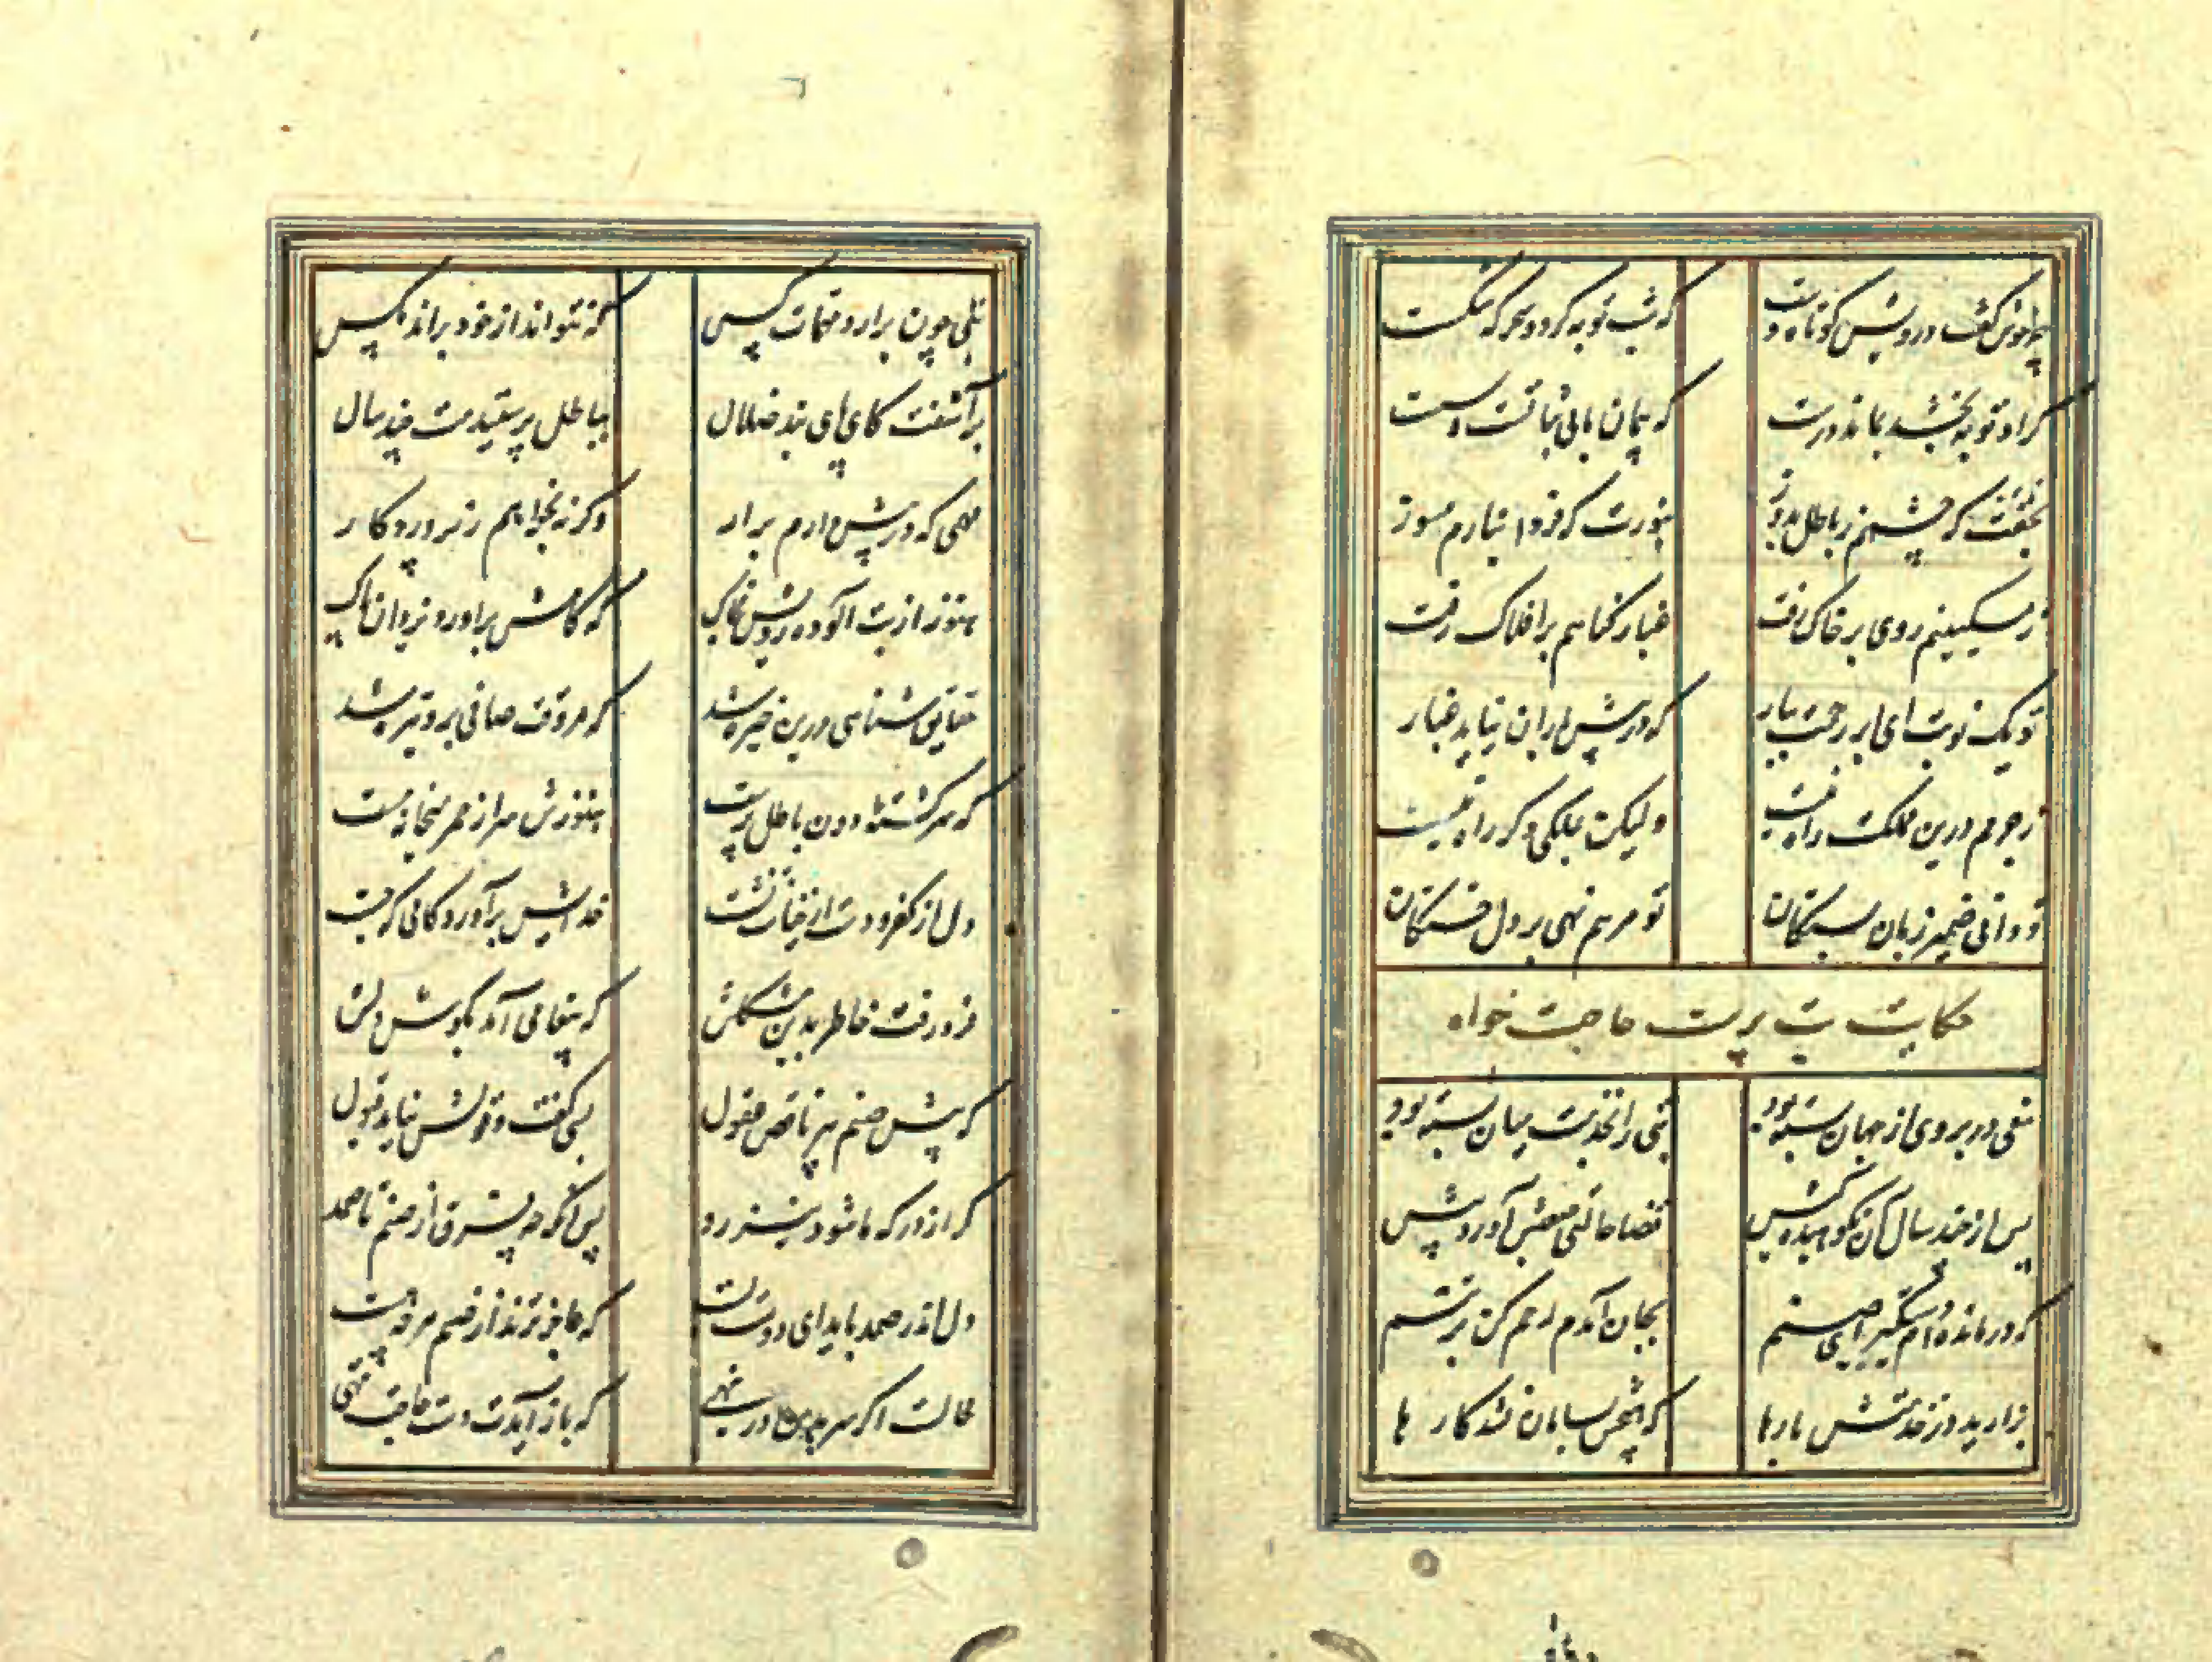 چه خوش گفت درویش کوتاه دست که شب توبه کرد و سحرگه شکست
گر او توبه بخشد بماند درست که پیمان ما بی ثباتست و سست
بحقت که چشمم ز باطل بدوز بنورت که فردا بنارم مسوز
ز مسکینیم روی بر خاک رفت غبار گناهم بر افلاک رفت
تو یک نوبت ای ابر رحمت ببار که در پیش باران نپاید غبار
ز جرمم درین مملکت راه نیست ولیکن بملکی دگر راه نیست
تو دانی ضمیر زبان بستگان تو مرهم نهی بر دل خستگان
حکایت بت پرست حاجت خواه
مغی در بروی از جهان بسته بود بتی را بخدمت میان بسته بود
پس از چند سال آن نکوهیده کیش قضا حالتی صعبش آورد پیش
که درمانده ام دستگیر ای صنم بجان آمدم رحم کن بر تنم
بزارید در خدمتش بارها که هیچش بسامان نشد کارها
بتی چون برآرد مهمات کس که نتواند از خود براند مگس
برآشفت کای پای بند ضلال بباطل پرستیدمت چند سال
مهمی که در پیش دارم برآر وگرنه بخواهم ز پروردگار
هنوز از بت آلوده رویش بخاک که کامش برآورد یزدان پاک
حقایق شناسی درین خیره شد که سر وقت صافی برو تیره شد
که سرگشته دون باطل پرست هنوزش سر از خمر بتخانه مست
دل از کفر و دست از خیانت نشست خدایش برآورد کامی که جست
فرو رفت خاطر بدین مشکلش که پیغامی آمد بگوش دلش
که پیش صنم پیر ناقص عقول بسی گفت و قولش نیامد قبول
گر از درگه ما شود نیز رد پس آنگه چه فرق از صنم تا صمد
دل اندر صمد باید ای دوست بست که عاجزترند از صنم هر که هست
محالست اگر سر برین در نهی که باز آیدت دست حاجت تهی